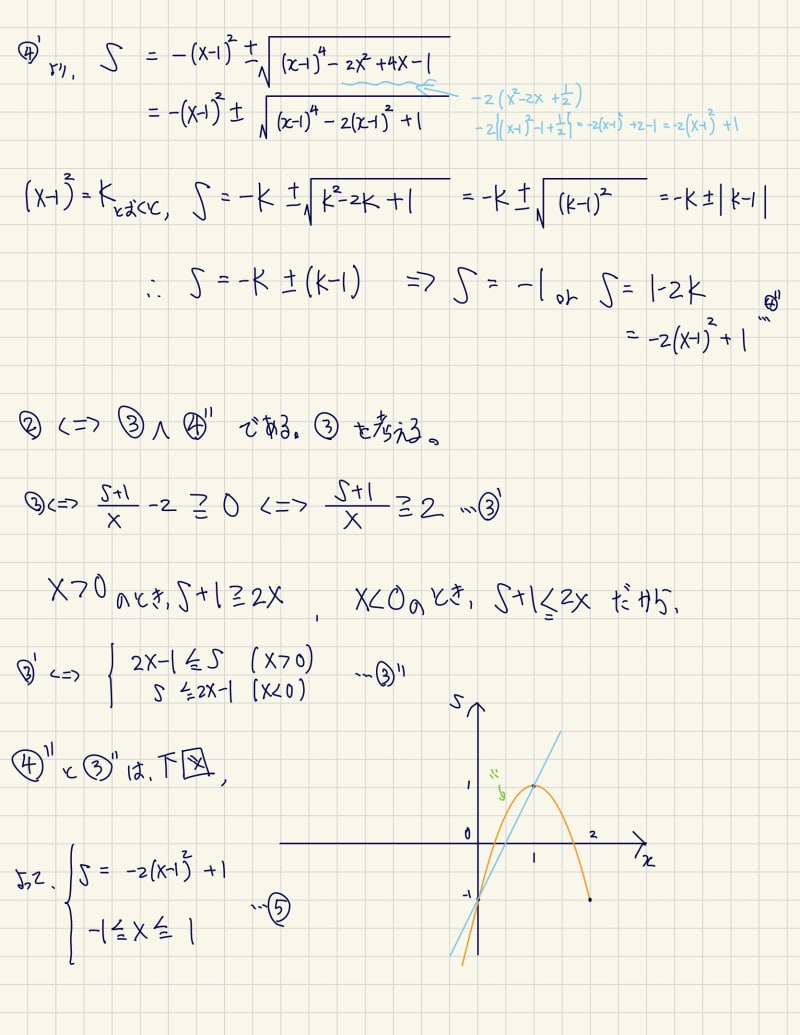 ④' より, S = -(x-1)² ± √((x-1)⁴ - 2x² + 4x - 1)
-2(x²-2x+1/2)
= -(x-1)² ± √((x-1)⁴ - 2(x-1)² + 1)
-2{(x-1)²-1+1/2} = -2(x-1)²+2-1 = -2(x-1)²+1
(x-1)² = K とおくと, S = -K ± √(K²-2K+1) = -K ± √((K-1)²) = -K ± |K-1|
∴ S = -K ± (K-1) ⇒ S = -1 or S = 1-2K
= -2(x-1)² + 1 … ④''
② <=> ③ ∧ ④'' である. ③ を考える。
③ <=> (S+1)/x - 2 ≧ 0 <=> (S+1)/x ≧ 2 … ③'
x>0 のとき, S+1 ≧ 2x , x<0 のとき, S+1 ≦ 2x だから,
③' <=> { 2x-1 ≦ S (x>0)
S ≦ 2x-1 (x<0) … ③''
④'' と ③'' は, 下図,
よって, { S = -2(x-1)² + 1
-1 ≦ x ≦ 1 … ⑤
S
1
0
2
1
x
-1